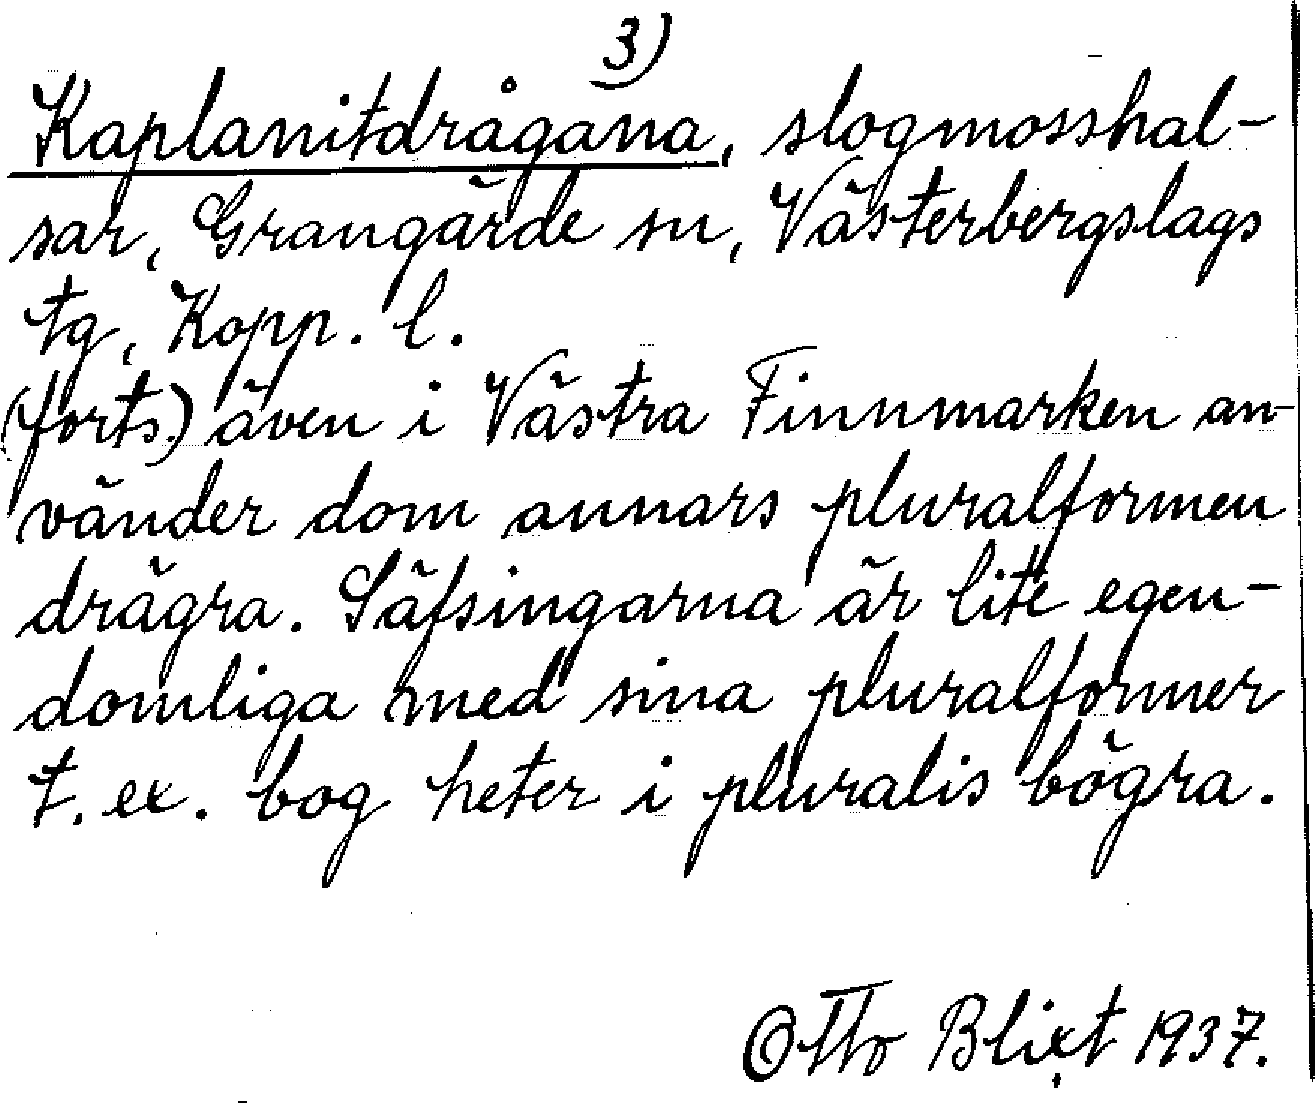 3)
Kaplanitdrågana, slogmosshal-
sar, Grangärde sn, Västerbergslags
tg, Kopp. l.
(forts.) även i Västra Finnmarken an-
vänder dom annars pluralformen
drägra. Säfsingarna är lite egen-
domliga med sina pluralformer
t. ex. bog heter i pluralis bögra.
Otto Blixt 1937.